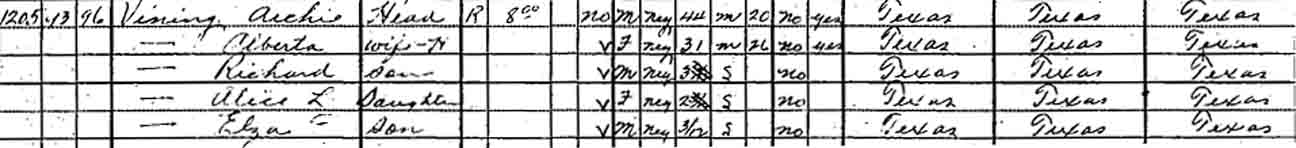 1205 13 96 Vining Archie Head R 8.00 no M neg 44 m 20 no yes Texas Texas Texas
— Alberta wife-H V F neg 31 m 26 no yes Texas Texas Texas
— Richard Son V m neg 3 S no Texas Texas Texas
— Alice L Daughter V F neg 2 S no Texas Texas Texas
— Elza Son V M neg 3/12 S no Texas Texas Texas